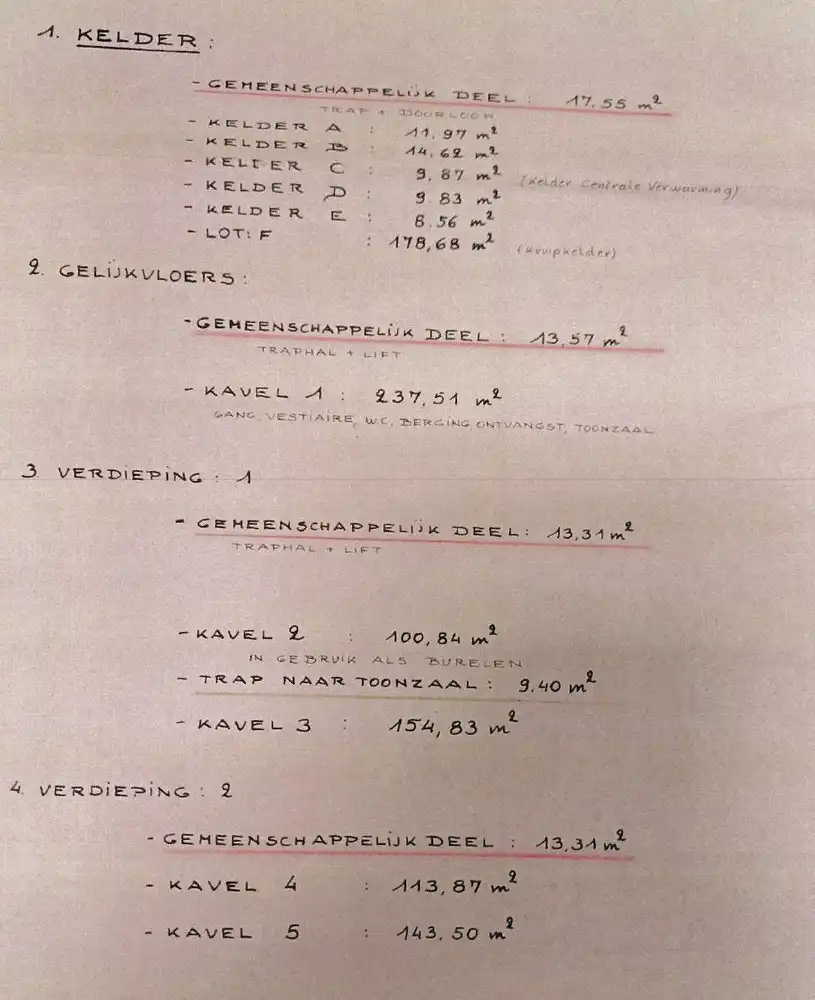 1. KELDER :
- GEMEENSCHAPPELIJK DEEL : 17.55 m²
TRAP + DOORLOOP
- KELDER A : 11,97 m²
- KELDER B : 14,62 m²
- KELDER C : 9,87 m² (Kelder Centrale Verwarming)
- KELDER D : 9.83 m²
- KELDER E : 8.56 m²
- LOT: F : 178,68 m² (Kruipkelder)
2. GELIJKVLOERS :
- GEMEENSCHAPPELIJK DEEL : 13,57 m²
TRAPHAL + LIFT
- KAVEL 1 : 237,51 m²
GANG, VESTIAIRE, WC, BERGING, ONTVANGST, TOONZAAL
3 VERDIEPING : 1
- GEMEENSCHAPPELIJK DEEL : 13,31 m²
TRAPHAL + LIFT
- KAVEL 2 : 100,84 m²
IN GEBRUIK ALS BURELEN
- TRAP NAAR TOONZAAL : 9.40 m²
- KAVEL 3 : 154,83 m²
4. VERDIEPING : 2
- GEMEENSCHAPPELIJK DEEL : 13,31 m²
- KAVEL 4 : 113,87 m²
- KAVEL 5 : 143.50 m²